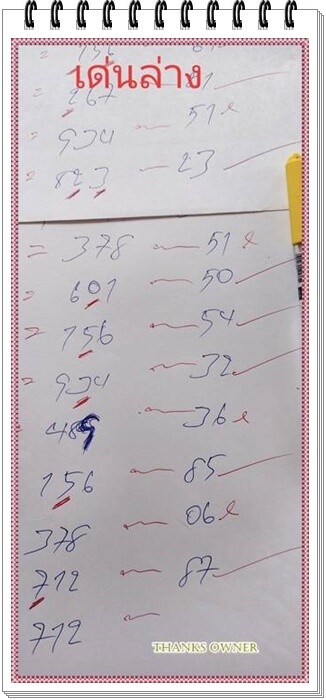 = 156 — 61
เด่นล่าง
= 267 — 01
= 934 — 51 x
= 823 — 23
= 378 — 51 x
= 601 — 50
= 156 — 54
= 934 — 32
489 — 36 x
156 — 85
378 — 06 x
712 — 87
712 —
THANKS OWNER